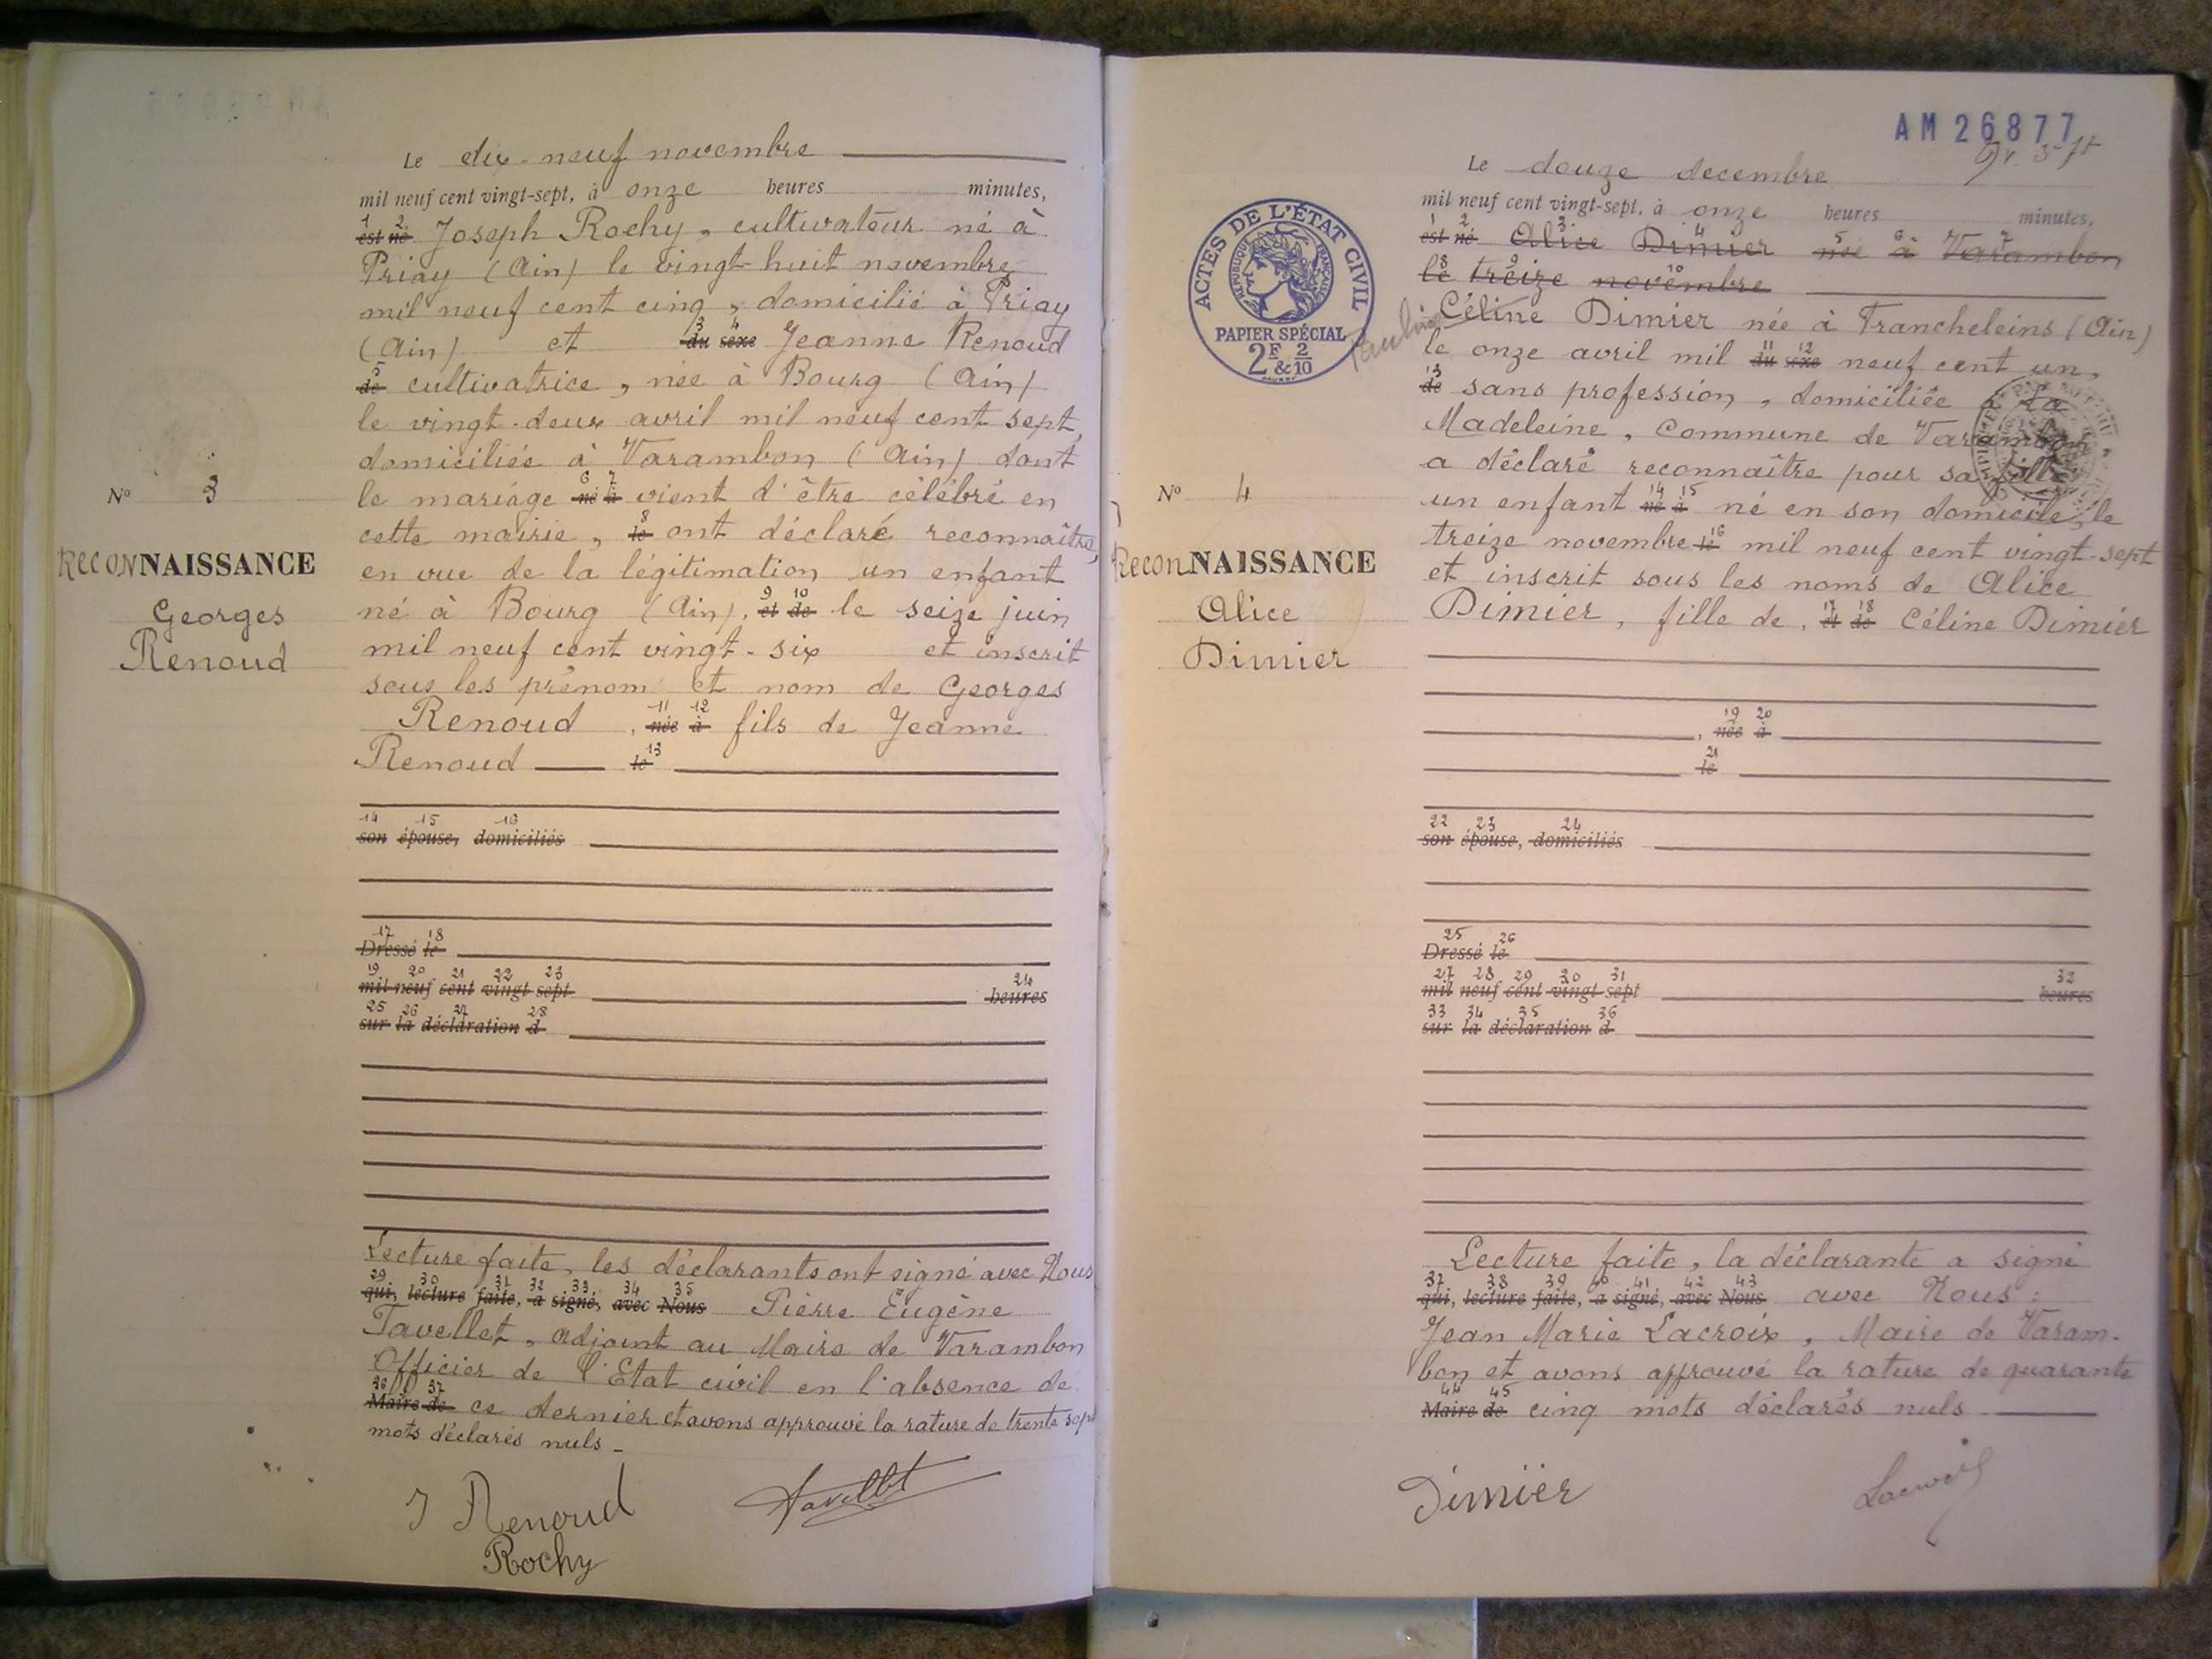 Le dix-neuf novembre
mil neuf cent vingt-sept, à onze heures minutes,
1 2
est né Joseph Rochy, cultivateur né à
Priay (Ain) le vingt-huit novembre
mil neuf cent cinq, domicilié à Priay
3 4
(Ain) et du sexe Jeanne Renoud
5
de cultivatrice, née à Bourg (Ain)
le vingt-deux avril mil neuf cent sept,
domiciliée à Varambon (Ain) dont
6 7
le mariage né à vient d'être célébré en
8
cette mairie, le ont déclaré reconnaître,
en vue de la légitimation un enfant
9 10
né à Bourg (Ain), et de le seize juin
mil neuf cent vingt-six et inscrit
sous les prénom et nom de Georges
11 12
Renoud, née à fils de Jeanne
13
Renoud le
14 15 16
son épouse, domiciliés
17 18
Dressé le
19 20 21 22 23 24
mil neuf cent vingt sept heures
25 26 27 28
sur la déclaration d
Lecture faite, les déclarants ont signé avec Nous
29 30 31 32 33 34 35
qui, lecture faite, a signé, avec Nous Pierre Eugène
Tavellet, adjoint au Maire de Varambon
Officier de l'Etat civil en l'absence de
36 37
Maire de ce dernier et avons approuvé la rature de trente sept
mots déclarés nuls -
J Renoud
Tavellet
Rochy
N° 3
ReconNAISSANCE
Georges
Renoud
AM 26877
Le douze decembre
mil neuf cent vingt-sept, à onze heures minutes,
1 2 3 4 5 6 7
est né Alice Dimier née à Varambon
8 9 10
le treize novembre
Céline Dimier née à Francheleins (Ain)
11 12
le onze avril mil du sexe neuf cent un,
13
de sans profession, domiciliée à La
Madeleine, Commune de Varambon
a déclaré reconnaître pour sa fille
14 15
un enfant né à né en son domicile, le
16
treize novembre le mil neuf cent vingt-sept
et inscrit sous les noms de Alice
17 18
Dimier, fille de, et de Céline Dimier
19 20
, née à
21
le
22 23 24
son épouse, domiciliés
25 26
Dressé le
27 28 29 30 31 32
mil neuf cent vingt sept heures
33 34 35 36
sur la déclaration d
Lecture faite, la déclarante a signé
37 38 39 40 41 42 43
qui, lecture faite, a signé, avec Nous avec Nous :
Jean Marie Lacroix, Maire de Varam-
bon et avons approuvé la rature de quarante
44 45
Maire de cinq mots déclarés nuls
Dimier
Lacroix
ACTES DE L'ÉTAT CIVIL
RÉPUBLIQUE FRANÇAISE
PAPIER SPÉCIAL
2F & 2/10
N° 4
ReconNAISSANCE
Alice
Dimier